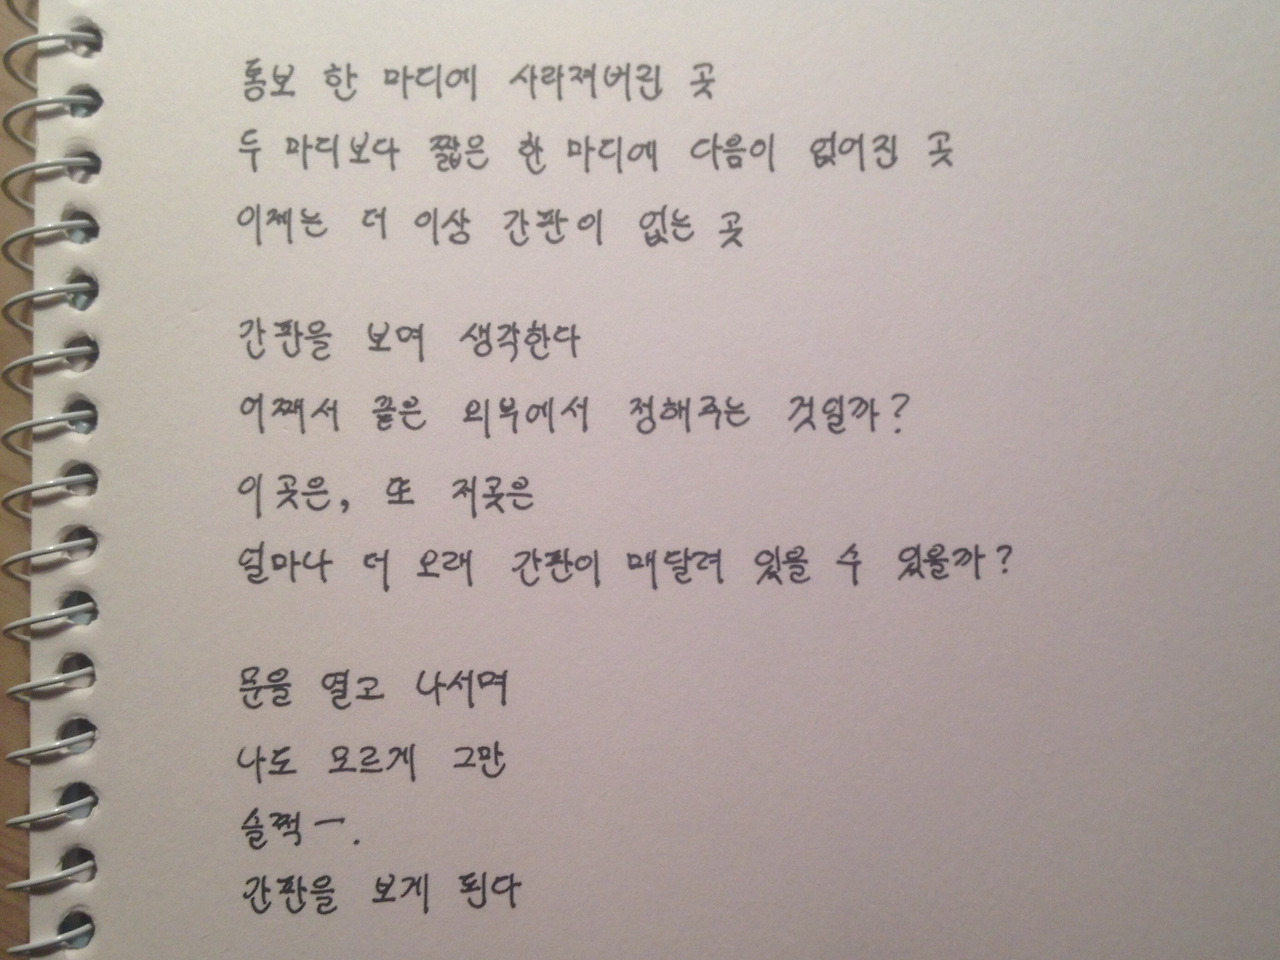 통보 한 마디에 사라져버린 곳
두 마디보다 짧은 한 마디에 다음이 없어진 곳
이제는 더 이상 간판이 없는 곳
간판을 보며 생각한다
어째서 끝은 외부에서 정해주는 것일까?
이 곳은, 또 저곳은
얼마나 더 오래 간판이 매달려 있을 수 있을까?
문을 열고 나서며
나도 모르게 그만
슬쩍 ㅡ.
간판을 보게 된다